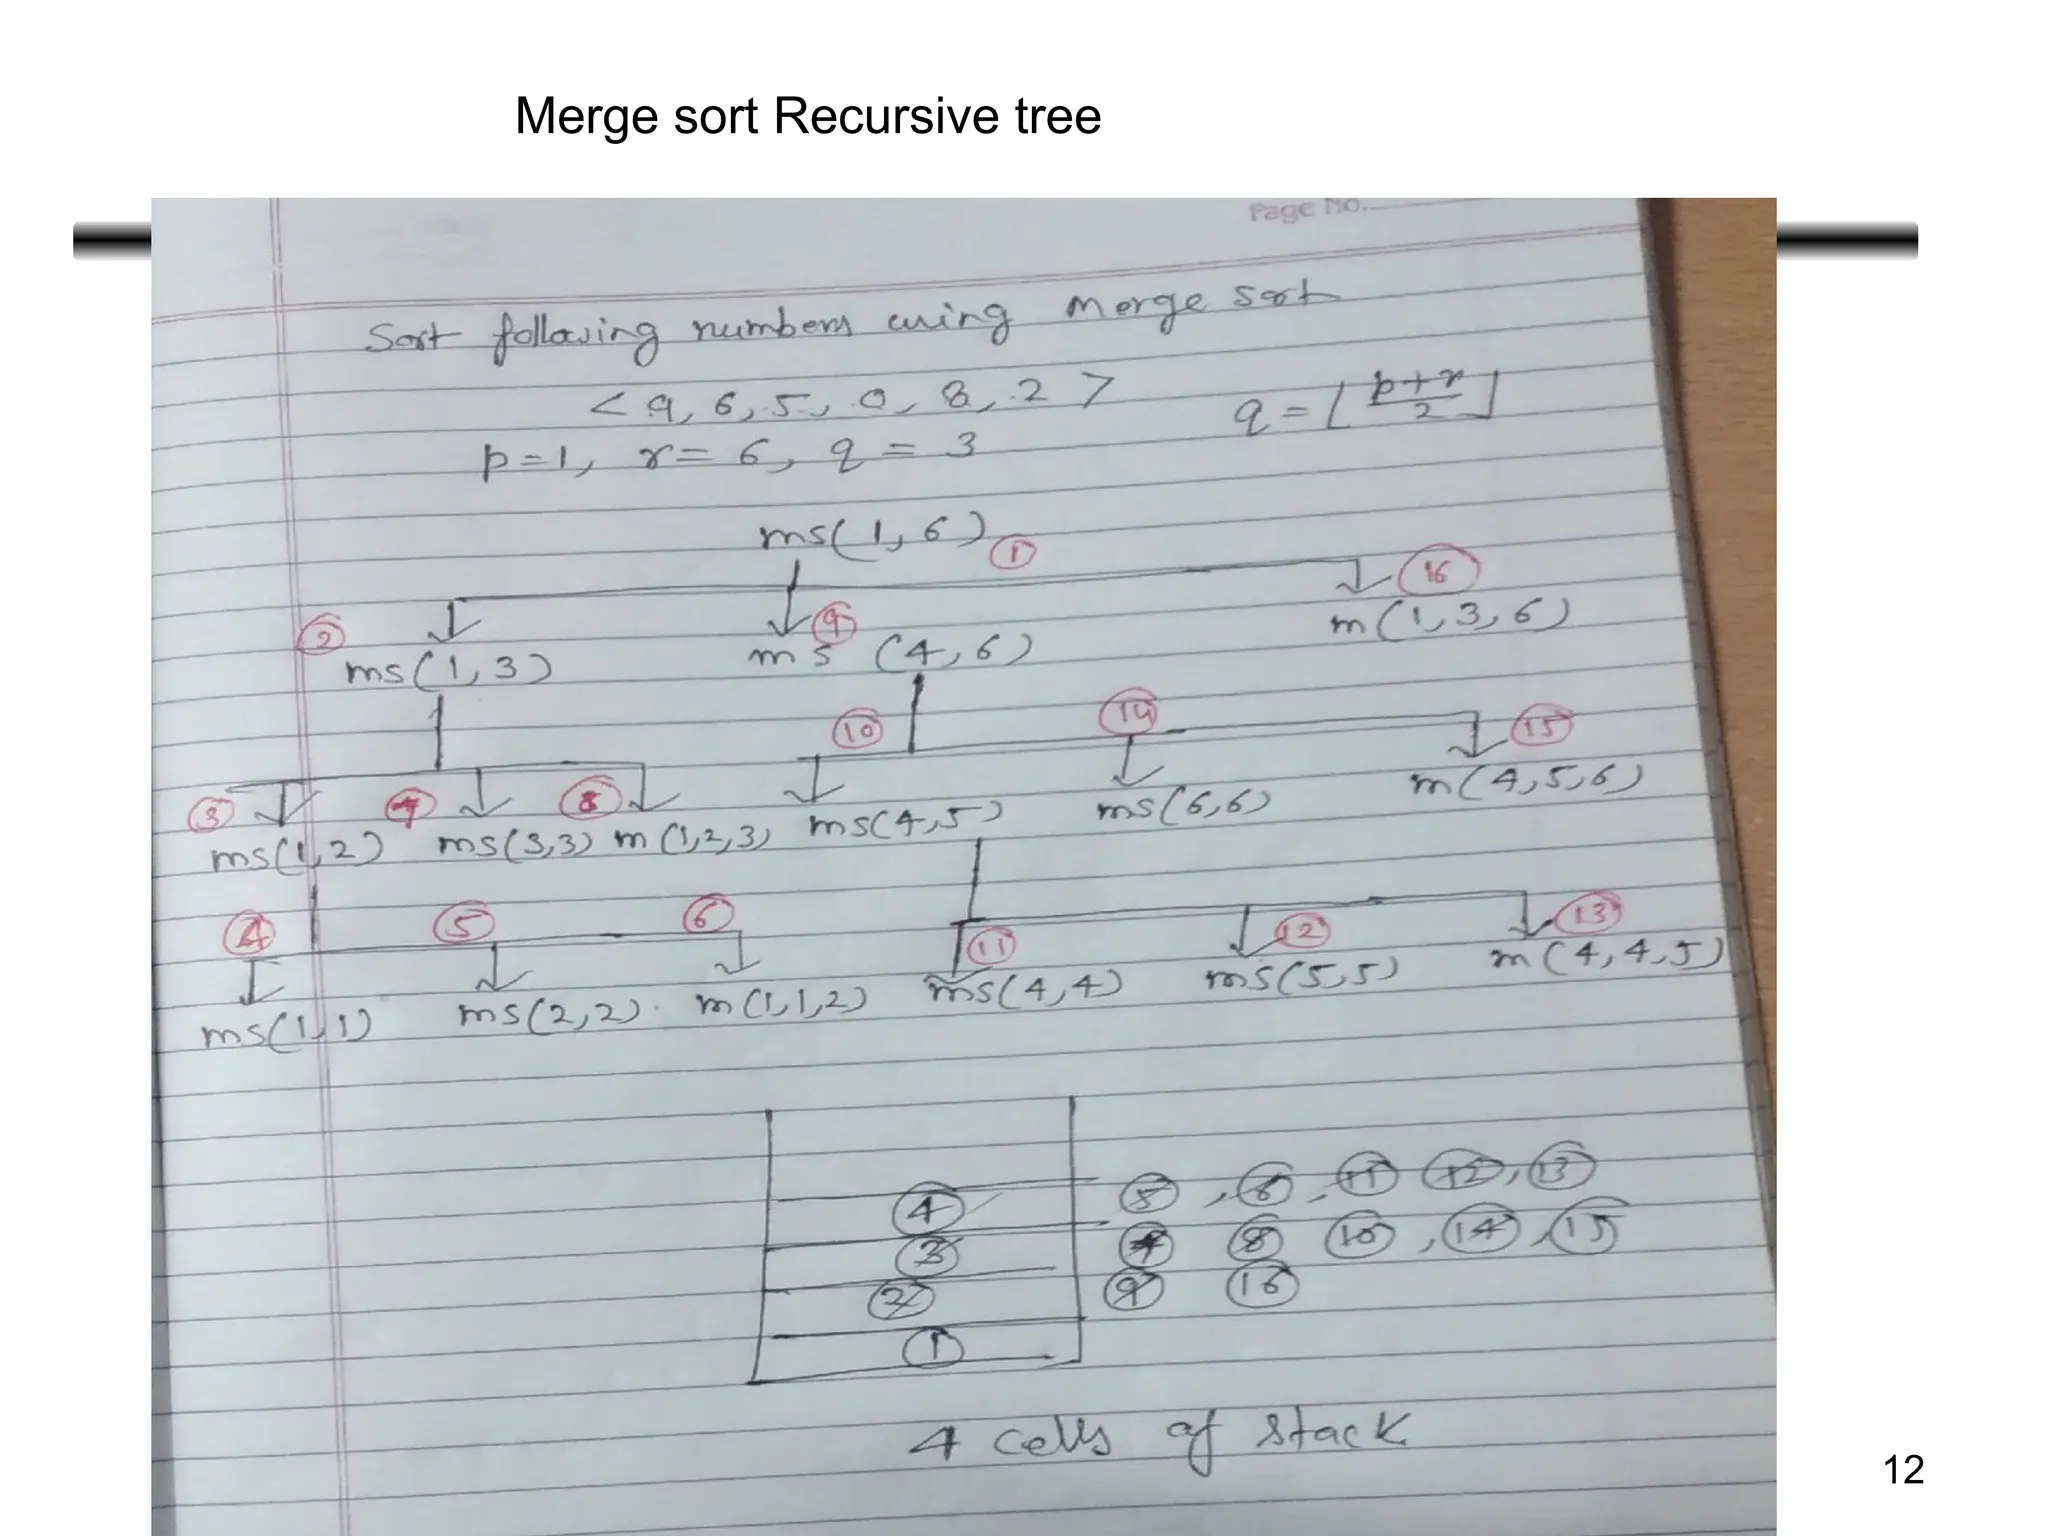 Merge sort Recursive tree
Page No.
Sort following numbers using Merge sort
< 9, 6, 5, 0, 8, 2 >
q = ⌊ p+r/2 ⌋
p=1, r= 6, q = 3
ms(1, 6) ①
② ms(1, 3)
⑨ ms (4, 6)
⑯ m(1, 3, 6)
③ ms(1, 2)
⑦ ms(3,3)
⑧ m(1,2,3)
⑩ ms(4,5)
⑭ ms(6,6)
⑮ m(4,5,6)
④ ms(1,1)
⑤ ms(2,2)
⑥ m(1,1,2)
⑪ ms(4,4)
⑫ ms(5,5)
⑬ m(4,4,5)
④ ⑤, ⑥, ⑪ ⑫, ⑬
③ ⑦ ⑧ ⑩, ⑭, ⑮
② ⑨ ⑯
①
4 cells of stack
12